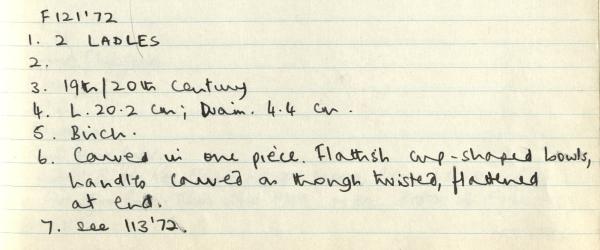 F121'72
1. 2 LADLES
2.
3. 19th/20th Century
4. L. 20.2 cm; Diam. 4.4 cm.
5. Birch.
6. Carved in one piece. Flattish cup-shaped bowls,
handles carved as though twisted, flattened
at end.
7. see 113'72.